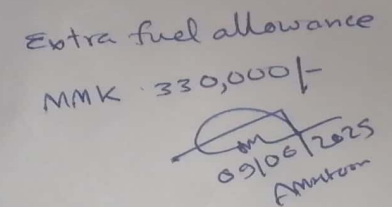 Extra fuel allowance
MMK 330,000/-
09/06/2025